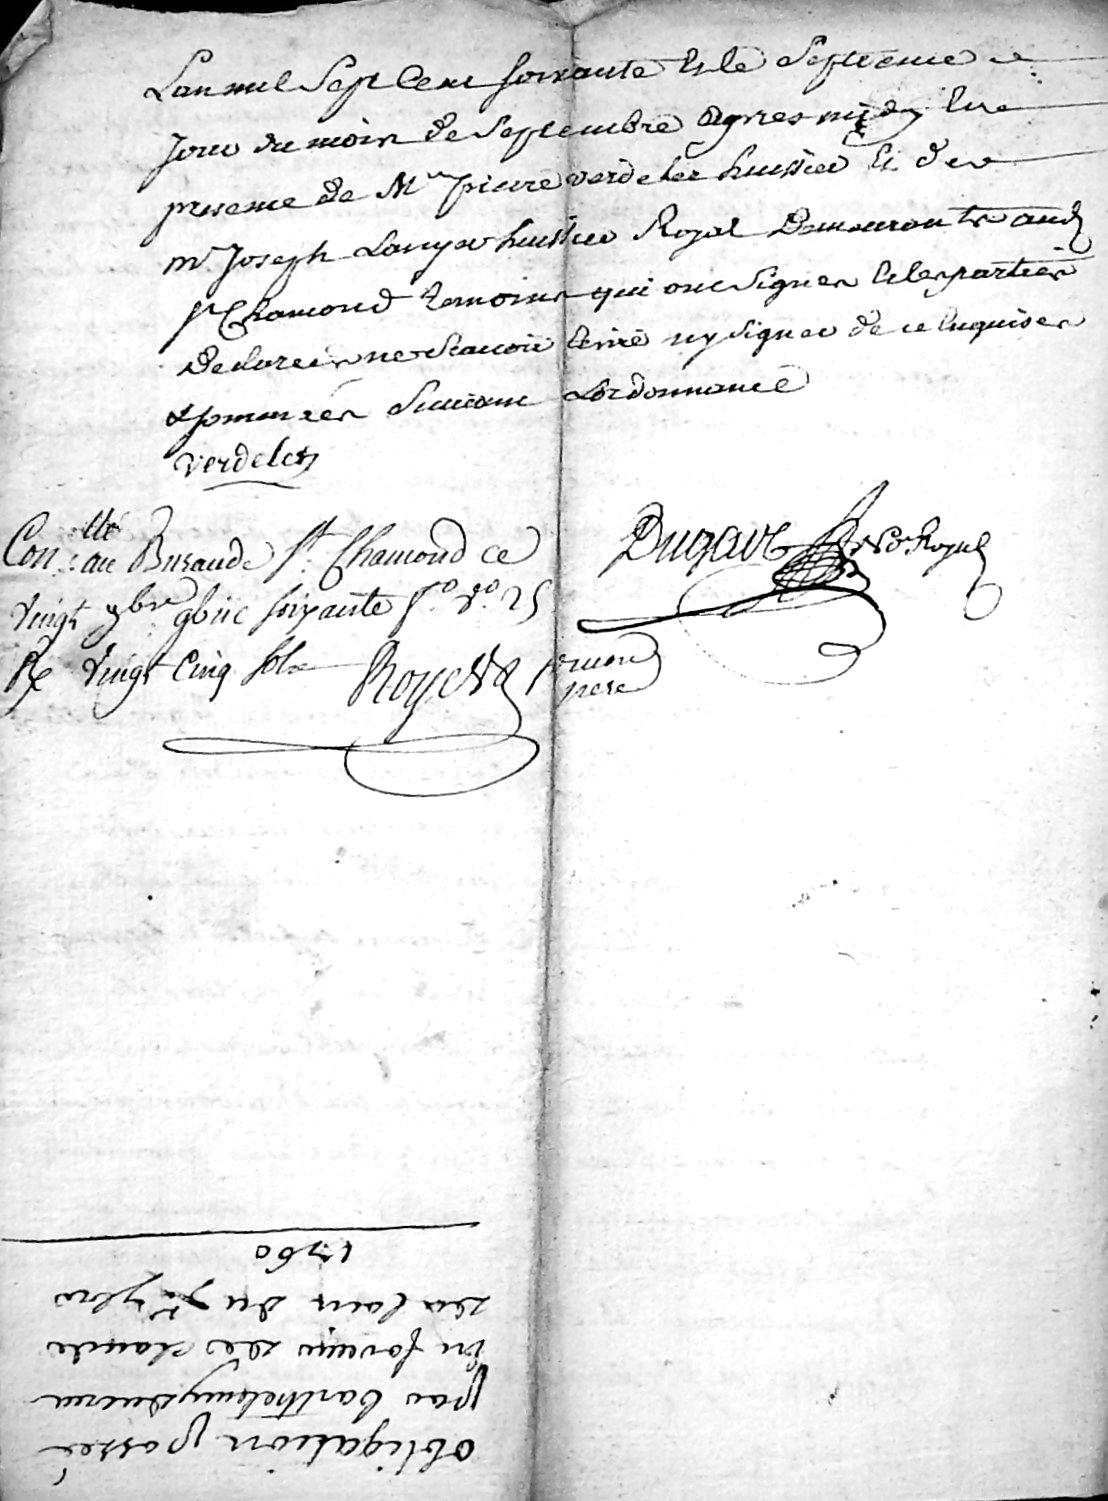 Lan mil Sept Cent soixante & le Septieme
Jour du mois de Septembre apres midy En
presence de Me pierre verdelet huissier & de
mr Joseph Lanyer huissier Royal Demeurants aud
st Chamond temoins qui ont signes & les parties
declarees ne scavoir Ecrire ny signer de ce Enquises
& sommées suivant Lordonnance
Verdelet
Conllé au Bureau de St. Chamond ce
Dugave Nore Royal
vingt 9bre 17biic soixante fo. vo. 25
Re vingt Cinq sols Royet
pere
obligation passée
par barthelemy
En faveur de claude
du 7e 7bre
1760